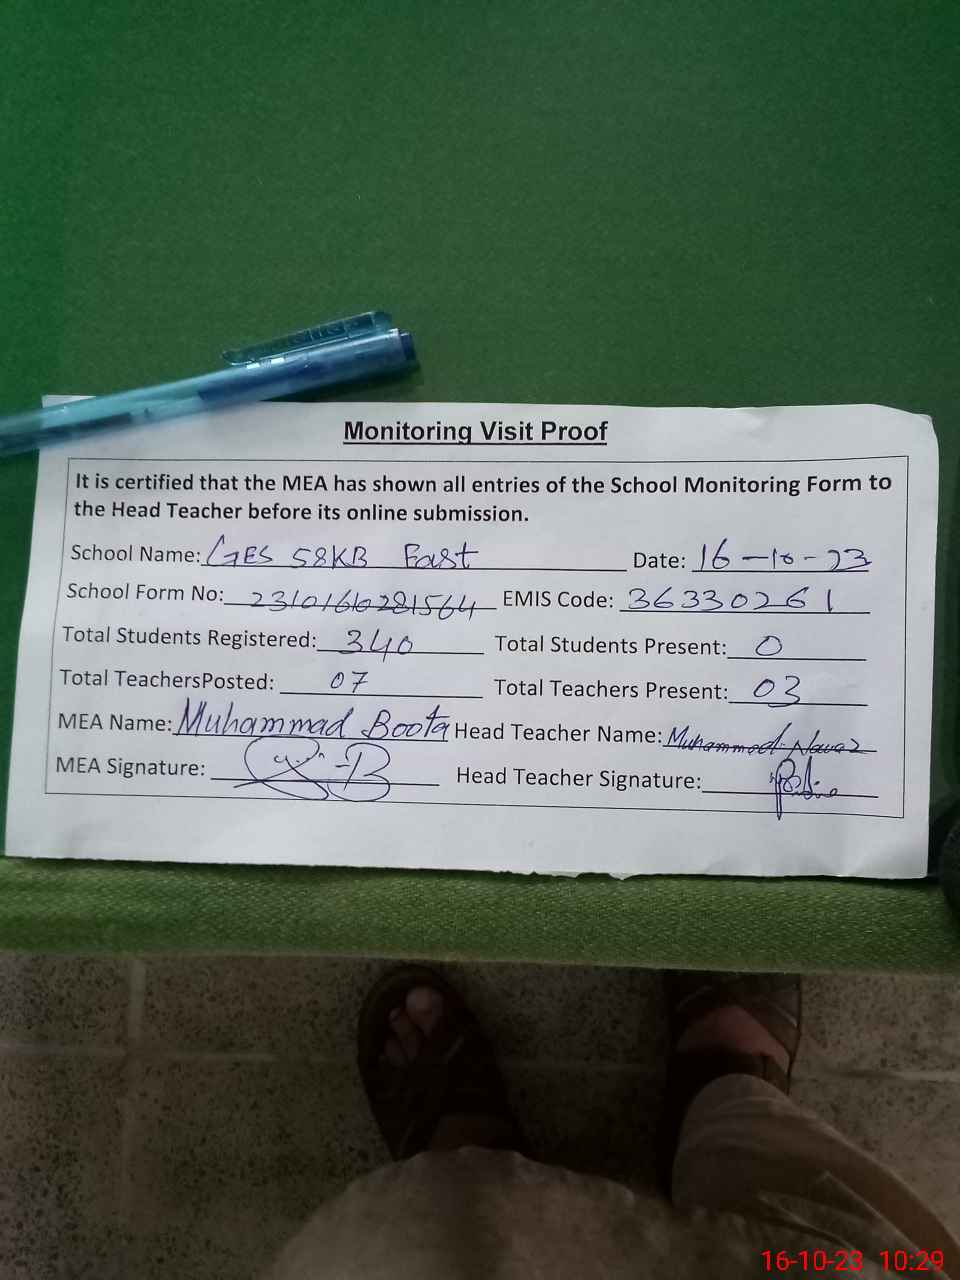 Monitoring Visit Proof
It is certified that the MEA has shown all entries of the School Monitoring Form to
the Head Teacher before its online submission.
School Name: GES 58KB East Date: 16-10-23
School Form No: 2310160281564 EMIS Code: 36330261
Total Students Registered: 340 Total Students Present: 0
Total TeachersPosted: 07 Total Teachers Present: 03
MEA Name: Muhammad Boota Head Teacher Name: Muhammad Nawaz
MEA Signature: Head Teacher Signature:
16-10-23 10:29